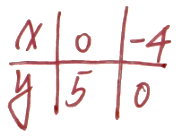 x 0 -4
y 5 0